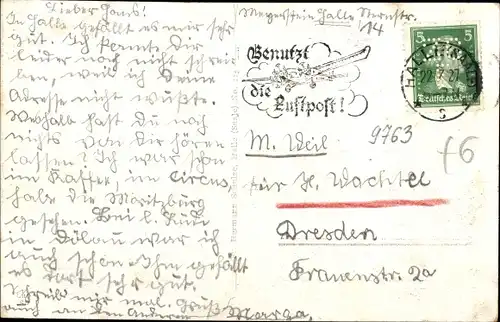 Lieber Hans!
In Halle gefällt es mir sehr
gut. Ich konnte Dir
leider noch nicht schrei
ben, weil ich Deine
Adresse nicht wußte.
Weshalb hast du noch
nichts von Dir hören
lassen? Ich war schon
im Kaffee, im Circus,
habe die Moritzburg
gesehen. Bei
in Dölau war ich
auch schon. Ihm gefällt
es dort sehr gut.
Schreib mir mal. Gruß
auch an den Anderen
Marga.
Meyerstein Halle Sternstr.
14
Benutzt
die
Luftpost!
HALLE
22.7.27
5 5
Deutsches Reich
M. Weil
9763
für H. Wachtel
Dresden
Frauenstr. 2a
£6